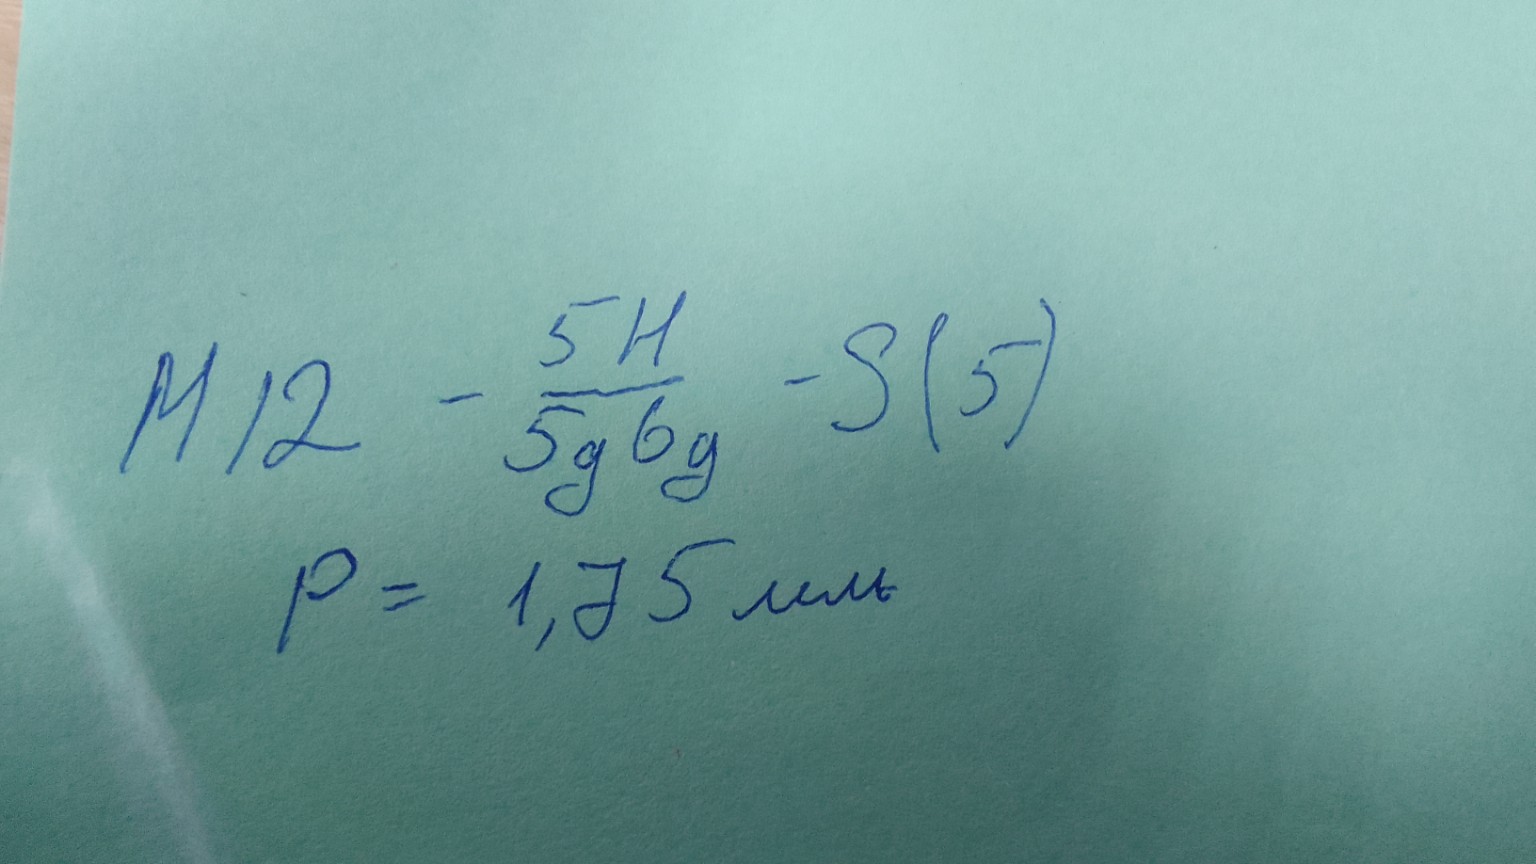 M12 - 5H/5g6g - S(5)
P = 1,75 мм